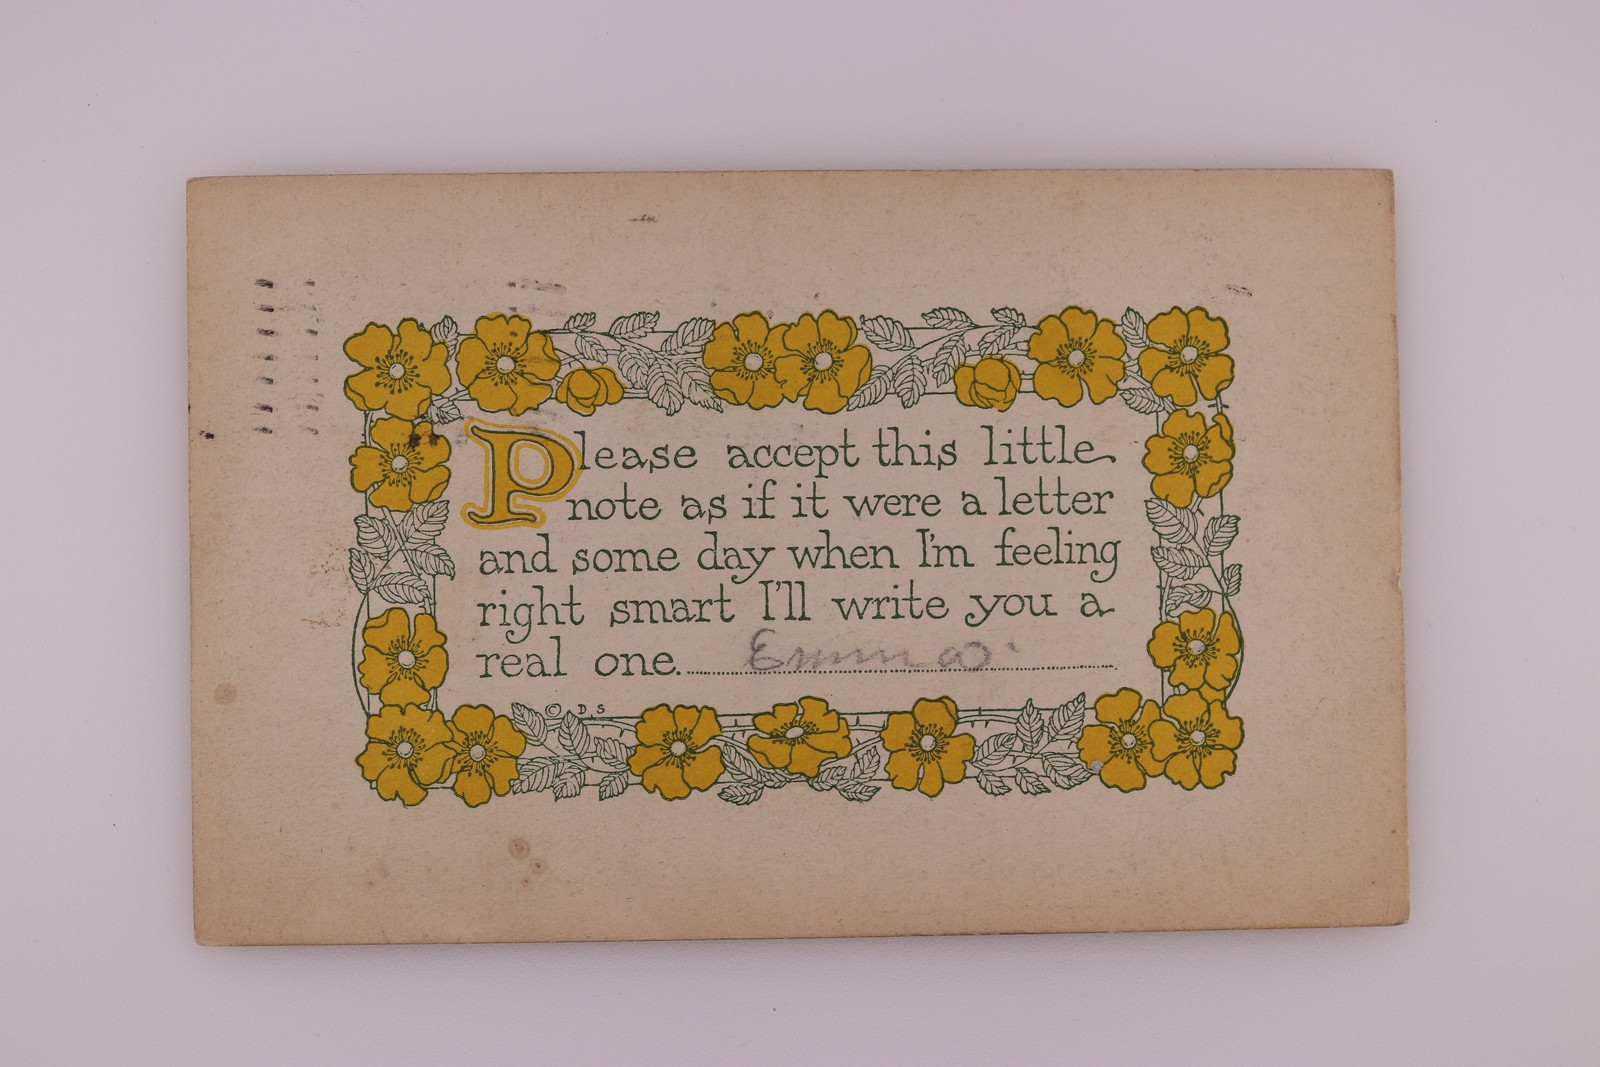 Please accept this little
note as if it were a letter
and some day when I'm feeling
right smart I'll write you a
real one. Emma
© D S